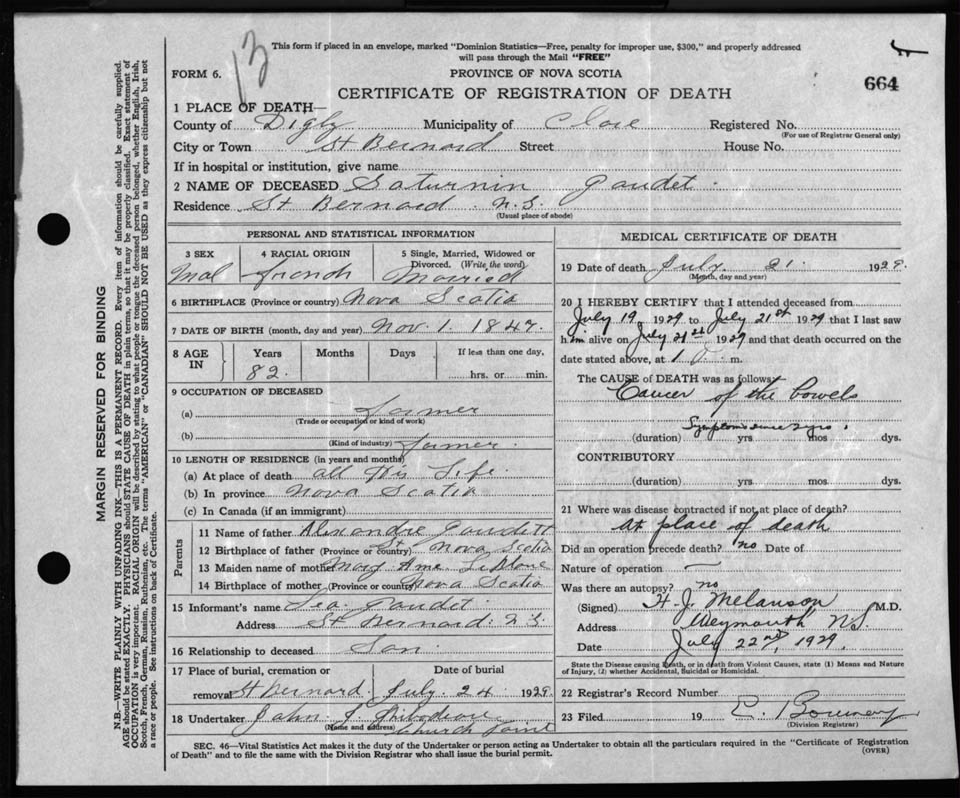 13
This form if placed in an envelope, marked "Dominion Statistics—Free, penalty for improper use, $300," and properly addressed
will pass through the Mail "FREE"
FORM 6.
PROVINCE OF NOVA SCOTIA
664
CERTIFICATE OF REGISTRATION OF DEATH
1 PLACE OF DEATH—
County of Digby Municipality of Clare Registered No.
(For use of Registrar General only)
City or Town St Bernard Street House No.
If in hospital or institution, give name
2 NAME OF DECEASED Saturnin Gaudet.
Residence St Bernard N.S.
(Usual place of abode)
PERSONAL AND STATISTICAL INFORMATION
3 SEX 4 RACIAL ORIGIN 5 Single, Married, Widowed or
Divorced. (Write the word)
Mal french Married
6 BIRTHPLACE (Province or country) Nova Scotia
7 DATE OF BIRTH (month, day and year) Nov. 1. 1847.
8 AGE IN Years Months Days If less than one day,
82. hrs. or min.
9 OCCUPATION OF DECEASED
(a) farmer
(Trade or occupation or kind of work)
(b) farmer.
(Kind of industry)
10 LENGTH OF RESIDENCE (in years and months)
(a) At place of death all His Life.
(b) In province Nova Scotia
(c) In Canada (if an immigrant)
Parents
11 Name of father Alexandre Gaudett
12 Birthplace of father (Province or country) Nova Scotia
13 Maiden name of mother Mary Ame LeBlanc
14 Birthplace of mother (Province or country) Nova Scotia
15 Informant's name Lea Gaudet
Address St Bernard N.S.
16 Relationship to deceased Son.
17 Place of burial, cremation or Date of burial
removal St Bernard. July. 24 1929.
18 Undertaker John J
(Name and address) Church Point
MEDICAL CERTIFICATE OF DEATH
19 Date of death July 21. 1929.
(Month, day and year)
20 I HEREBY CERTIFY that I attended deceased from
July 19 1929 to July 21st 1929 that I last saw
him alive on July 21st 1929 and that death occurred on the
date stated above, at 1 P. m.
The CAUSE of DEATH was as follows:
Cancer of the bowels
Symptoms since 2 yrs.
(duration) yrs. mos. dys.
CONTRIBUTORY
(duration) yrs. mos. dys.
21 Where was disease contracted if not at place of death?
At place of death
Did an operation precede death? no Date of
Nature of operation —
Was there an autopsy? no
(Signed) H. J. Melanson M.D.
Address Weymouth N.S.
Date July 22nd, 1929.
State the Disease causing Death, or in death from Violent Causes, state (1) Means and Nature
of Injury, (2) whether Accidental, Suicidal or Homicidal.
22 Registrar's Record Number
23 Filed 19
(Division Registrar)
SEC. 46—Vital Statistics Act makes it the duty of the Undertaker or person acting as Undertaker to obtain all the particulars required in the "Certificate of Registration
of Death" and to file the same with the Division Registrar who shall issue the burial permit.
(OVER)
MARGIN RESERVED FOR BINDING
N.B.—WRITE PLAINLY WITH UNFADING INK—THIS IS A PERMANENT RECORD. Every item of information should be carefully supplied.
AGE should be stated EXACTLY. PHYSICIANS should STATE CAUSE OF DEATH in plain terms, so that it may be properly classified. Exact statement of
OCCUPATION is very important. RACIAL ORIGIN will be described by stating to what people or tongue the deceased person belonged, whether English, Irish,
Scotch, French, German, Russian, Ruthenian, etc. The terms "AMERICAN" or "CANADIAN" SHOULD NOT BE USED as they express citizenship but not
a race or people. See instructions on back of Certificate.